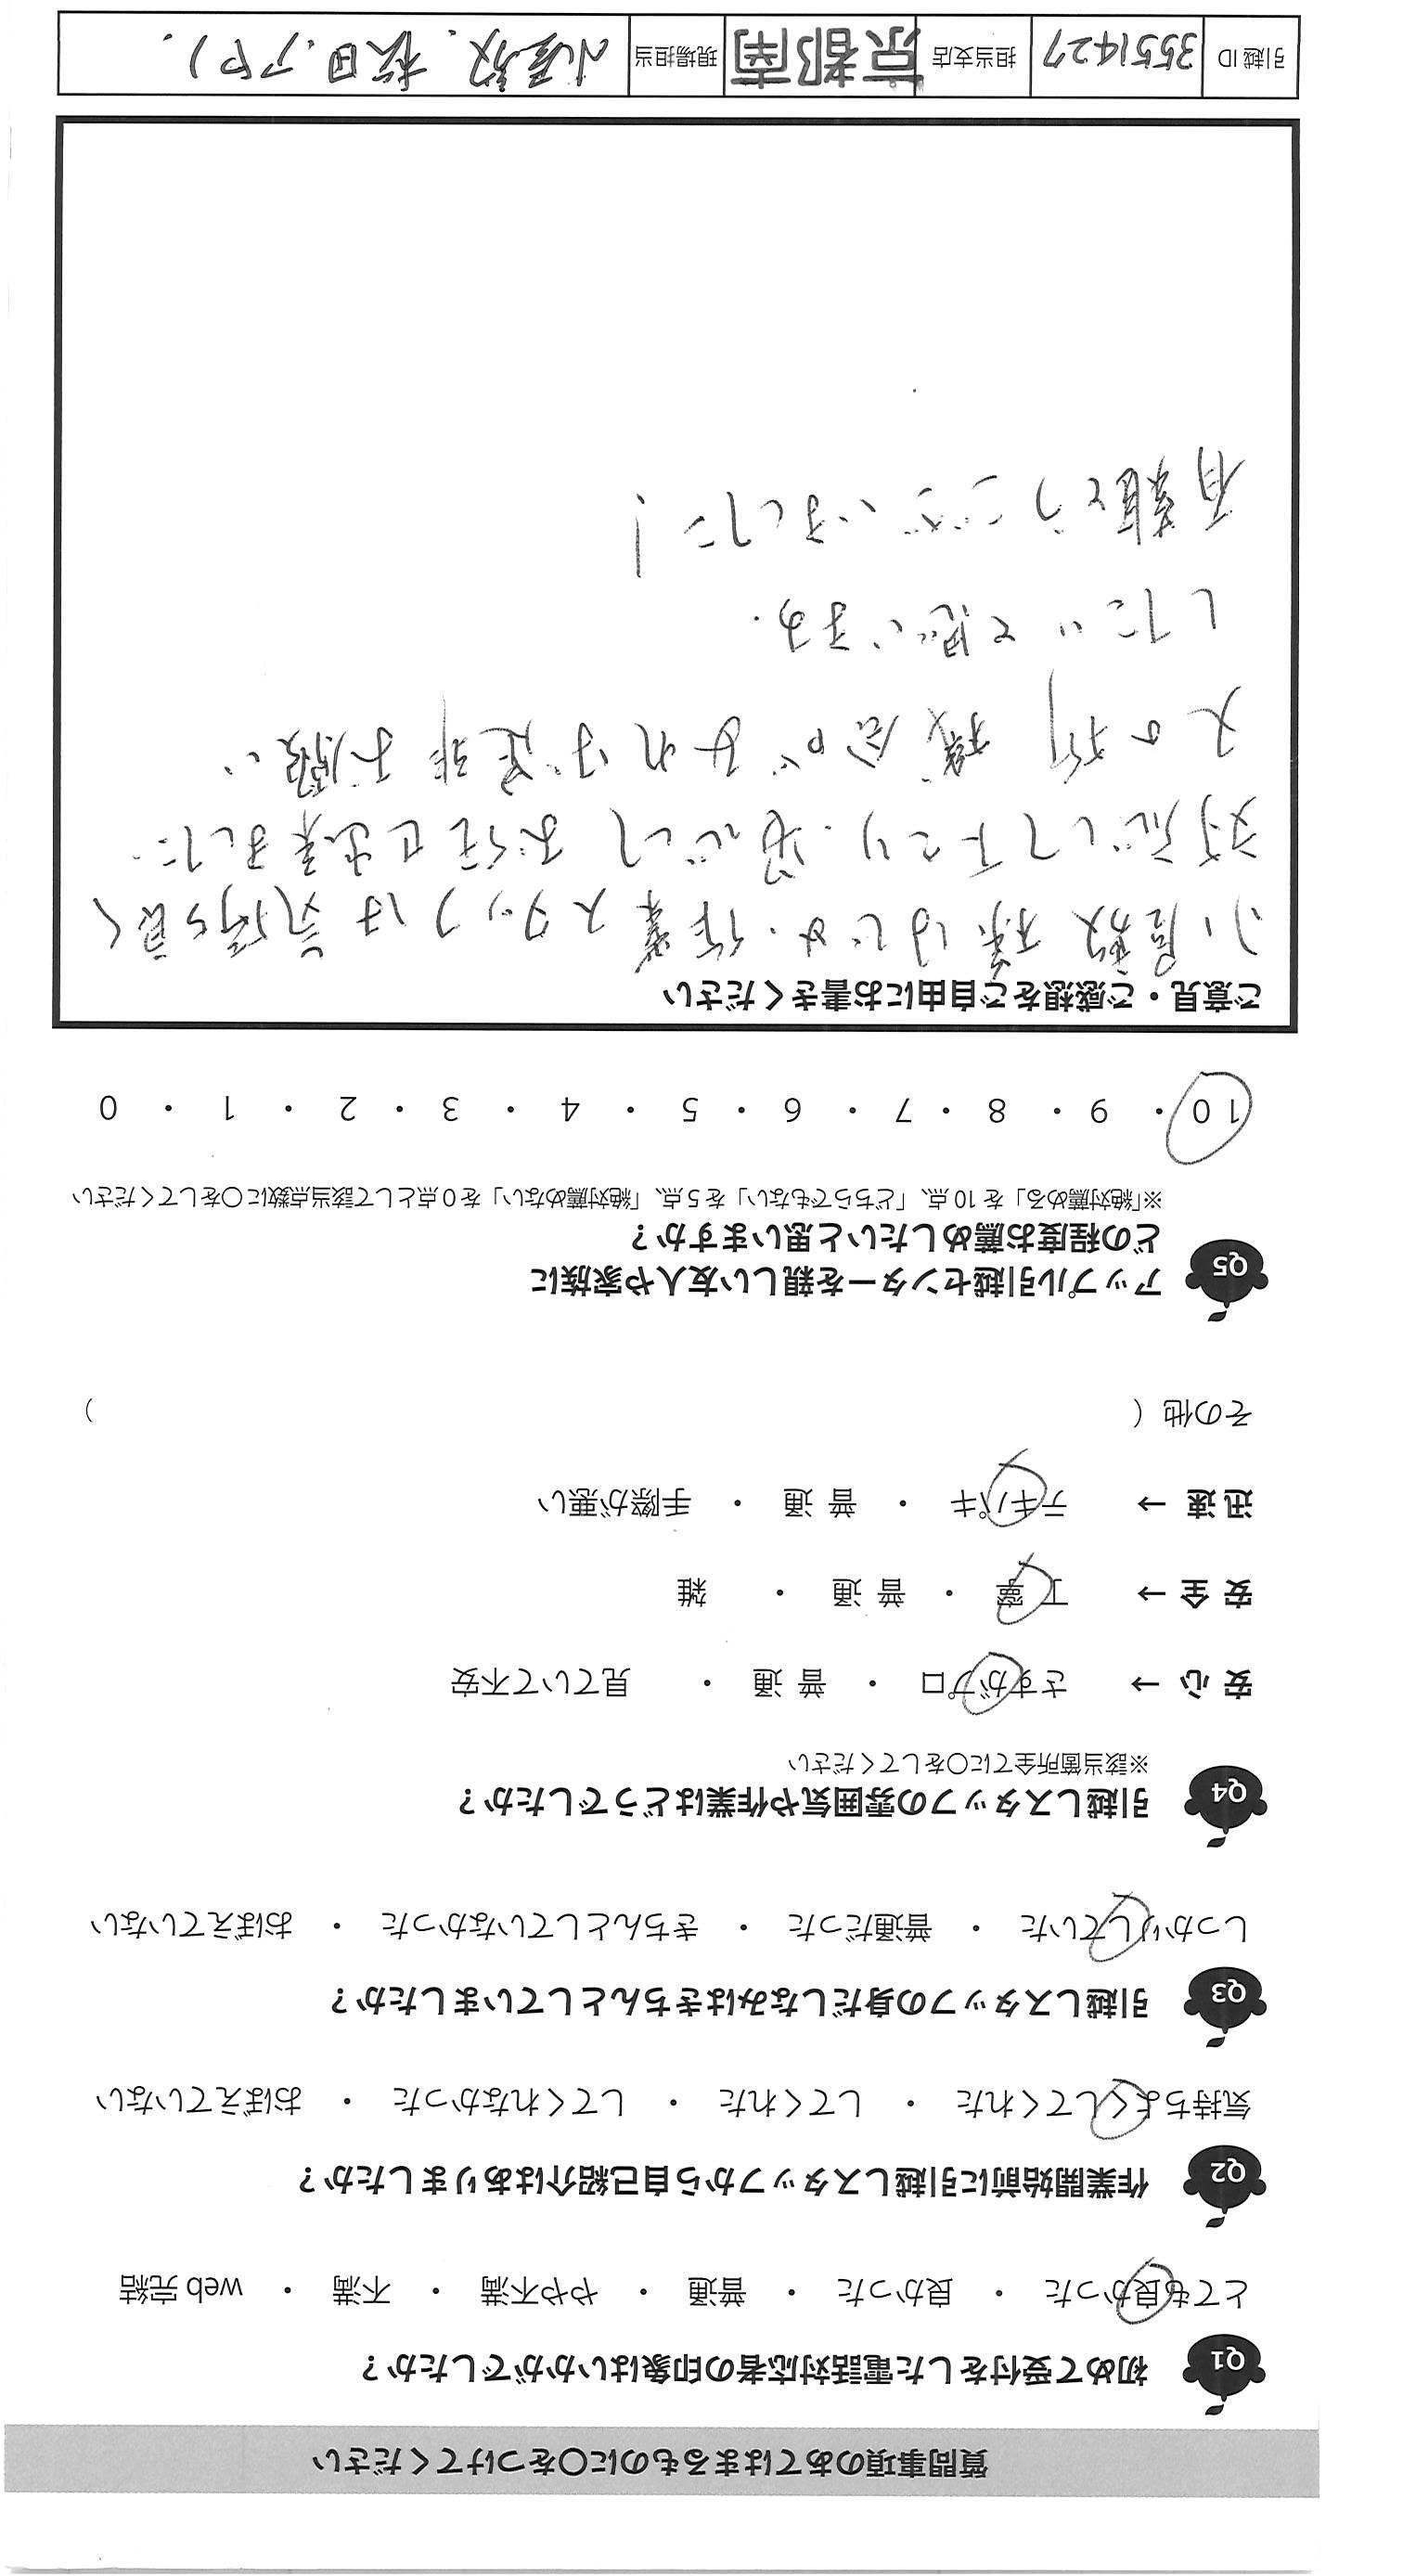 質問事項のあてはまるものに〇をつけてください
Q1 初めて受付をした電話対応者の印象はいかがでしたか？
とても良かった ・ 良かった ・ 普通 ・ やや不満 ・ 不満 ・ web 完結
Q2 作業開始前に引越しスタッフから自己紹介はありましたか？
気持ちよくしてくれた ・ してくれた ・ してくれなかった ・ おぼえていない
Q3 引越しスタッフの身だしなみはきちんとしていましたか？
しっかりしていた ・ 普通だった ・ きちんとしていなかった ・ おぼえていない
Q4 引越しスタッフの雰囲気や作業はどうでしたか？
※該当箇所全てに〇をしてください
安 心 → さすがプロ ・ 普 通 ・ 見ていて不安
安 全 → 丁 寧 ・ 普 通 ・ 雑
迅 速 → テキパキ ・ 普 通 ・ 手際が悪い
その他 （ ）
Q5 アップル引越センターを親しい友人や家族に
どの程度お薦めしたいと思いますか？
※「絶対薦める」を 10 点、「どちらでもない」を 5 点、「絶対薦めない」を 0 点として該当点数に〇をしてください
10 ・ 9 ・ 8 ・ 7 ・ 6 ・ 5 ・ 4 ・ 3 ・ 2 ・ 1 ・ 0
ご意見・ご感想をご自由にお書きください
小屋敷様はじめ、作業スタッフは気持ち良く
対応して下さり、安心してお任せ出来ました.
又の折 機会があれば是非お願い
したいと思います.
有難うございました！
引越 ID 35551427 担当支店 京都南 現場担当 小屋敷、松田、アヤ).